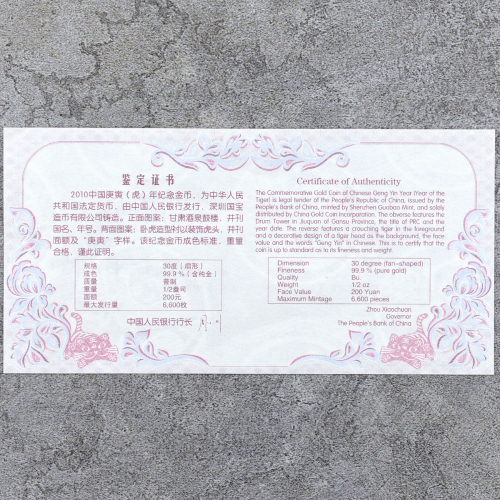 鉴定证书
2010中国庚寅（虎）年纪念金币，为中华人民
共和国法定货币，由中国人民银行发行，深圳国宝
造币有限公司铸造。正面图案：甘肃酒泉鼓楼，并刊
国名、年号。背面图案：卧虎造型衬以装饰虎头，并刊
面额及“庚寅”字样。该纪念金币成色标准，重量
合格，谨此证明。
规格 30度（扇形）
成色 99.9％（含纯金）
质量 普制
重量 1/2盎司
面额 200元
最大发行量 6,600枚
中国人民银行行长
Certificate of Authenticity
The Commemorative Gold Coin of Chinese Geng Yin Year (Year of the
Tiger) is legal tender of the People's Republic of China, issued by the
People's Bank of China, minted by Shenzhen Guobao Mint, and solely
distributed by China Gold Coin Incorporation. The obverse features the
Drum Tower in Jiuquan of Gansu Province, the title of PRC and the
year date. The reverse features a crouching tiger in the foreground
and a decorative design of a tiger head as the background, the face
value and the words "Geng Yin" in Chinese. This is to certify that the
coin is up to standard as to its fineness and weight.
Dimension 30 degree (fan-shaped)
Fineness 99.9 % (pure gold)
Quality Bu.
Weight 1/2 oz
Face Value 200 Yuan
Maximum Mintage 6,600 pieces
Zhou Xiaochuan
Governor
The People's Bank of China